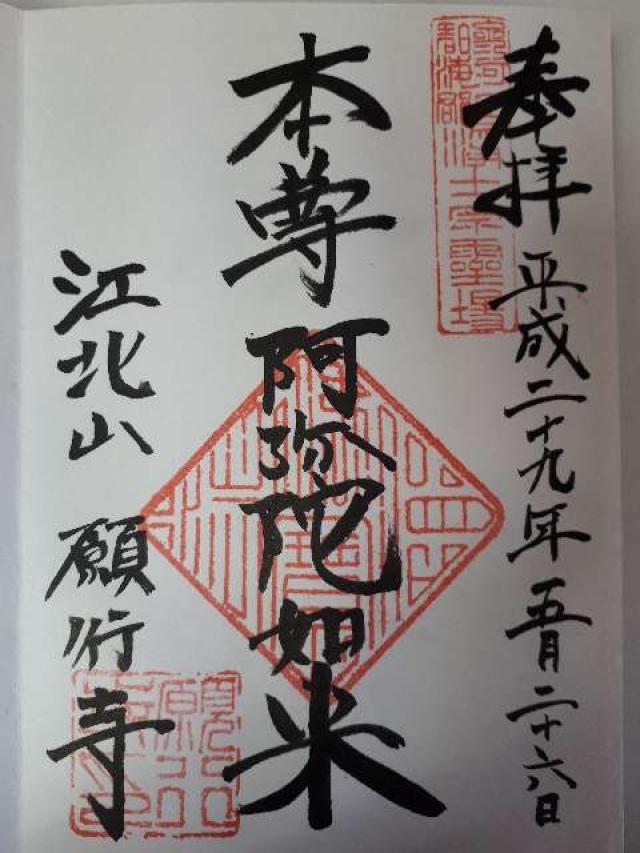 奉拝 平成二十九年五月二十六日
本尊 阿弥陀如来
江北山 願行寺